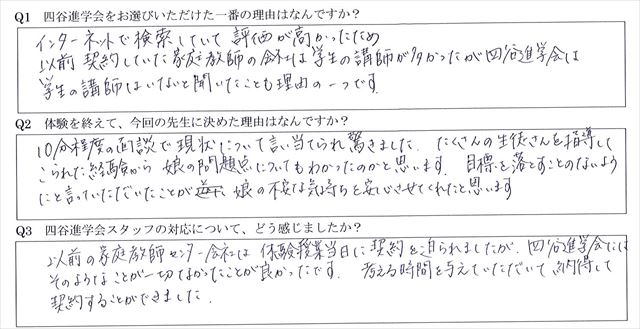 Q1 四谷進学会をお選びいただけた一番の理由はなんですか？
インターネットで検索していて 評価が高かったため
以前 契約していた家庭教師の会社は学生の講師が多かったが四谷進学会は
学生の講師はいないと聞いたことも理由の一つです.
Q2 体験を終えて、今回の先生に決めた理由はなんですか？
10分程度の面談で現状について言い当てられ驚きました. たくさんの生徒さんを指導して
こられた経験から 娘の問題点についてもわかったのかと思います. 目標を落とすことのないよう
にと言っていただいたことが 娘の不安な気持ちを安心させてくれたと思います
Q3 四谷進学会スタッフの対応について、どう感じましたか？
以前の家庭教師センター会社は 体験授業当日に契約を迫られましたが、四谷進学会には
そのようなことが一切なかったことが良かったです. 考える時間を与えていただいて、納得して
契約することができました.